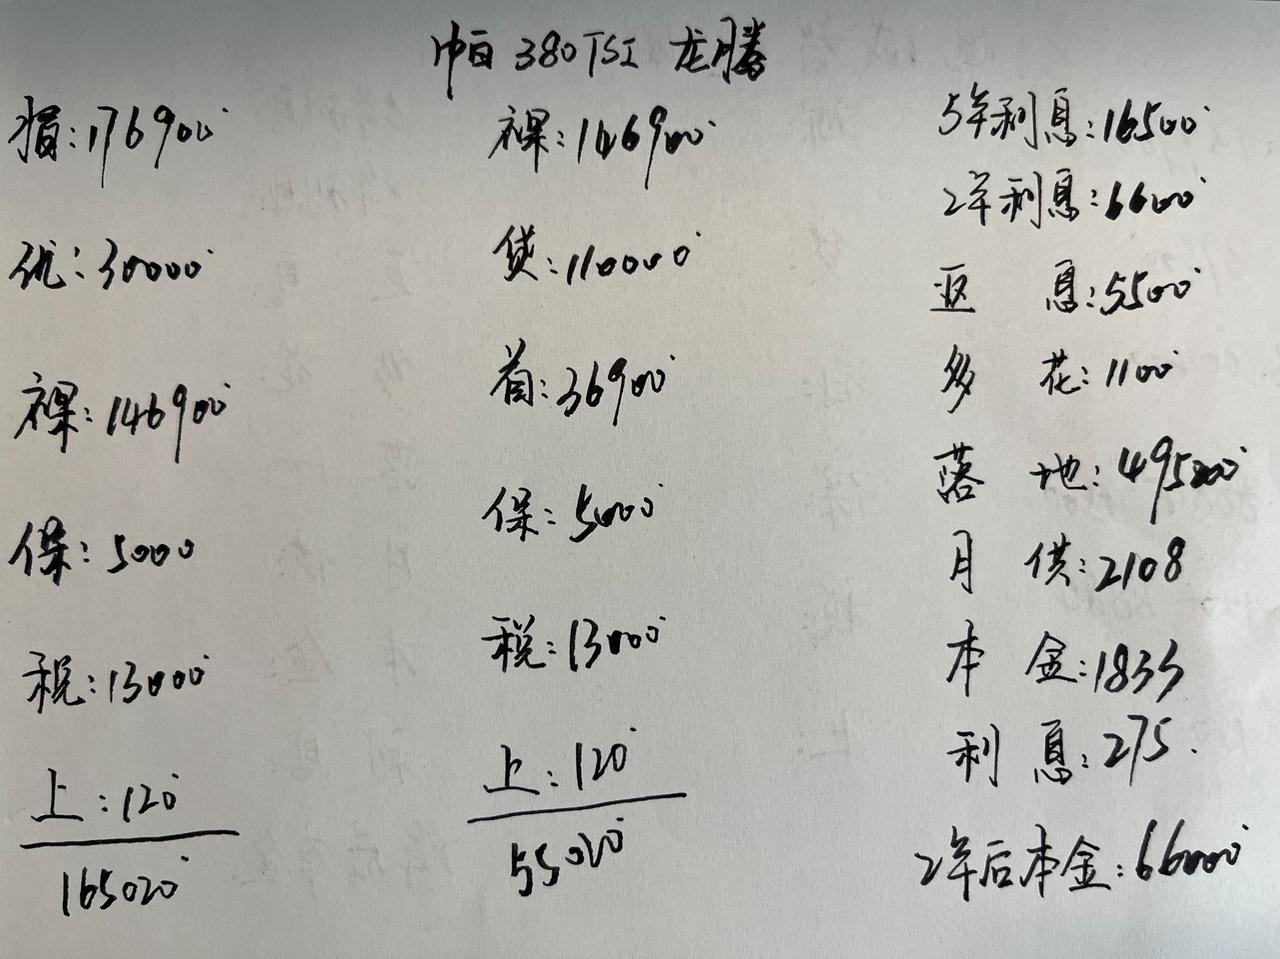 帕 380TSI 龙腾
指:176900
优:30000
裸:146900
保:5000
税:13000
上:120
165020
裸:146900
贷:110000
首:36900
保:5000
税:13000
上:120
55020
5年利息:16500
2年利息:6600
返 息:5500
多 花:1100
落 地:49520
月 供:2108
本 金:1833
利 息:275.
2年后本金:66000